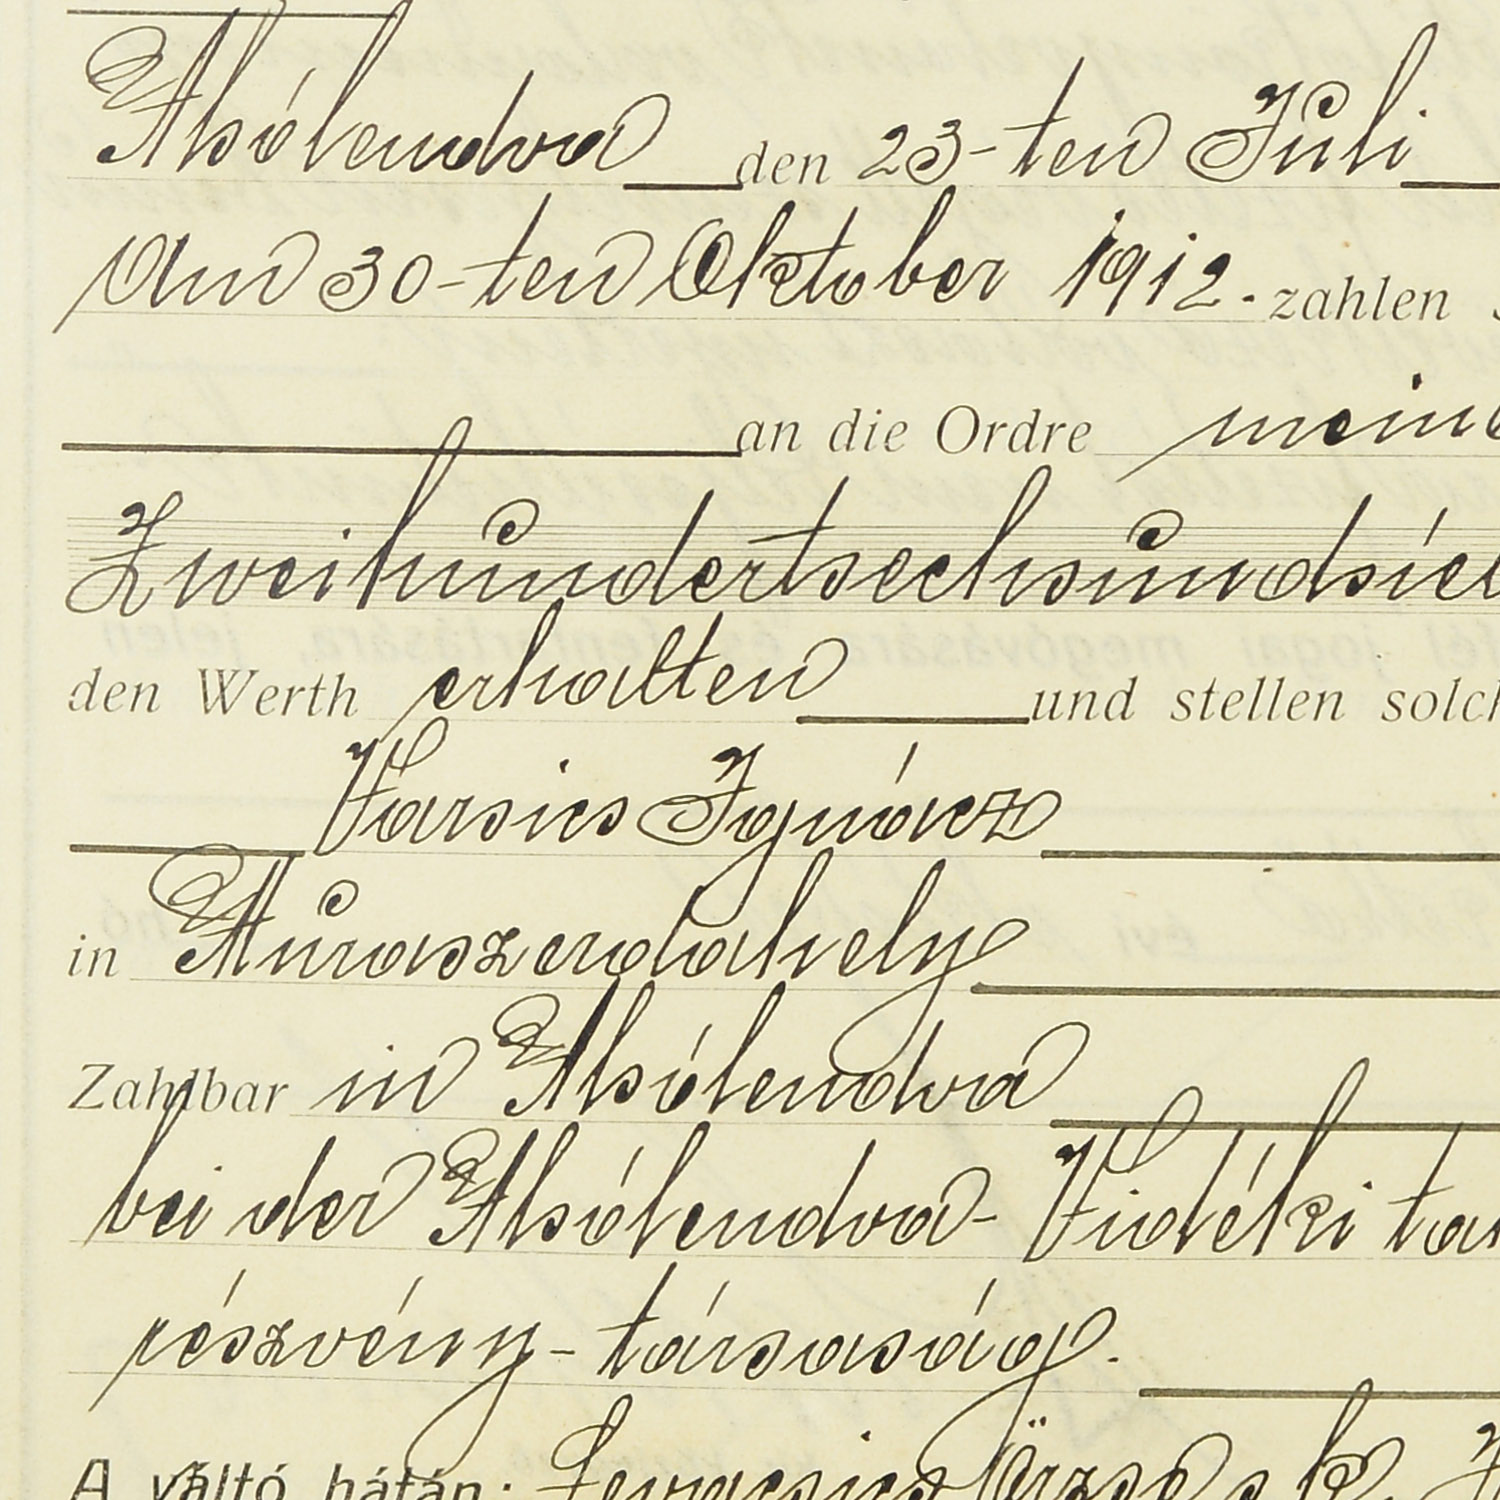 Alsólendva den 23-ten Juli
Am 30-ten Oktober 1912. zahlen
an die Ordre meine
Zweihundertsechsundsieb
den Werth erhalten und stellen solch
Varsics Ignácz
in Muraszerdahely
Zahlbar in Alsólendva
bei der Alsólendva-Vidéki tak
részvény-társaság.
A váltó hátán: